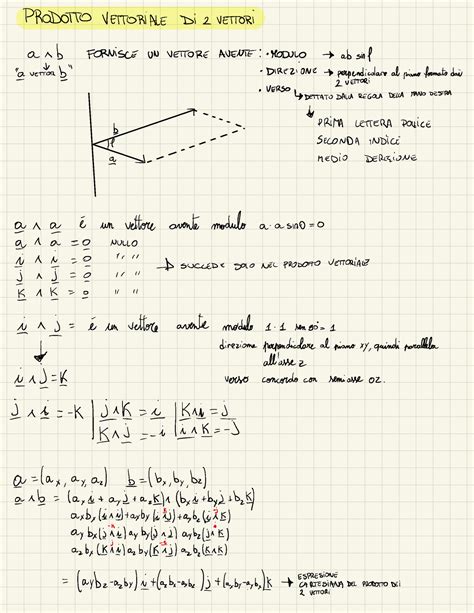 PRODOTTO VETTORIALE DI 2 VETTORI
a ∧ b FORNISCE UN VETTORE AVENTE: · MODULO → ab sinφ
"a VETTOR b" · DIREZIONE → perpendicolare al piano formato dai 2 VETTORI
· VERSO ↳ DETTATO DALLA REGOLA DELLA MANO DESTRA
PRIMA LETTERA POLLICE
SECONDA INDICE
MEDIO DIREZIONE
b
φ
a
a ∧ a é un vettore avente modulo a·a sin0=0
a ∧ a = 0 NULLO
i ∧ i = 0 " "
j ∧ j = 0 " " → SUCCEDE SOLO NEL PRODOTTO VETTORIALE
K ∧ K = 0 " "
i ∧ j = é un vettore avente modulo 1·1 sen90°=1
direzione perpendicolare al piano xy, quindi parallela
all'asse z
i ∧ j = K verso concorde con semiasse oz.
j ∧ i = -K | j ∧ K = i | K ∧ i = j
K ∧ j = -i | i ∧ K = -j
a = (ax, ay, az) b = (bx, by, bz)
a ∧ b = (ax i + ay j + az K) ∧ (bx i + by j + bz K)
axbx (i∧i) + axby (i∧j) + axbz (i∧K)
aybx (j∧i) ayby (j∧j) aybz (j∧K)
azbx (K∧i) azby (K∧j) azbz (K∧K)
= (aybz - azby) i + (azbx - axbz) j + (axby - aybx) K → ESPRESIONE
CARTESIANA DEL PRODOTTO DEI
2 VETTORI